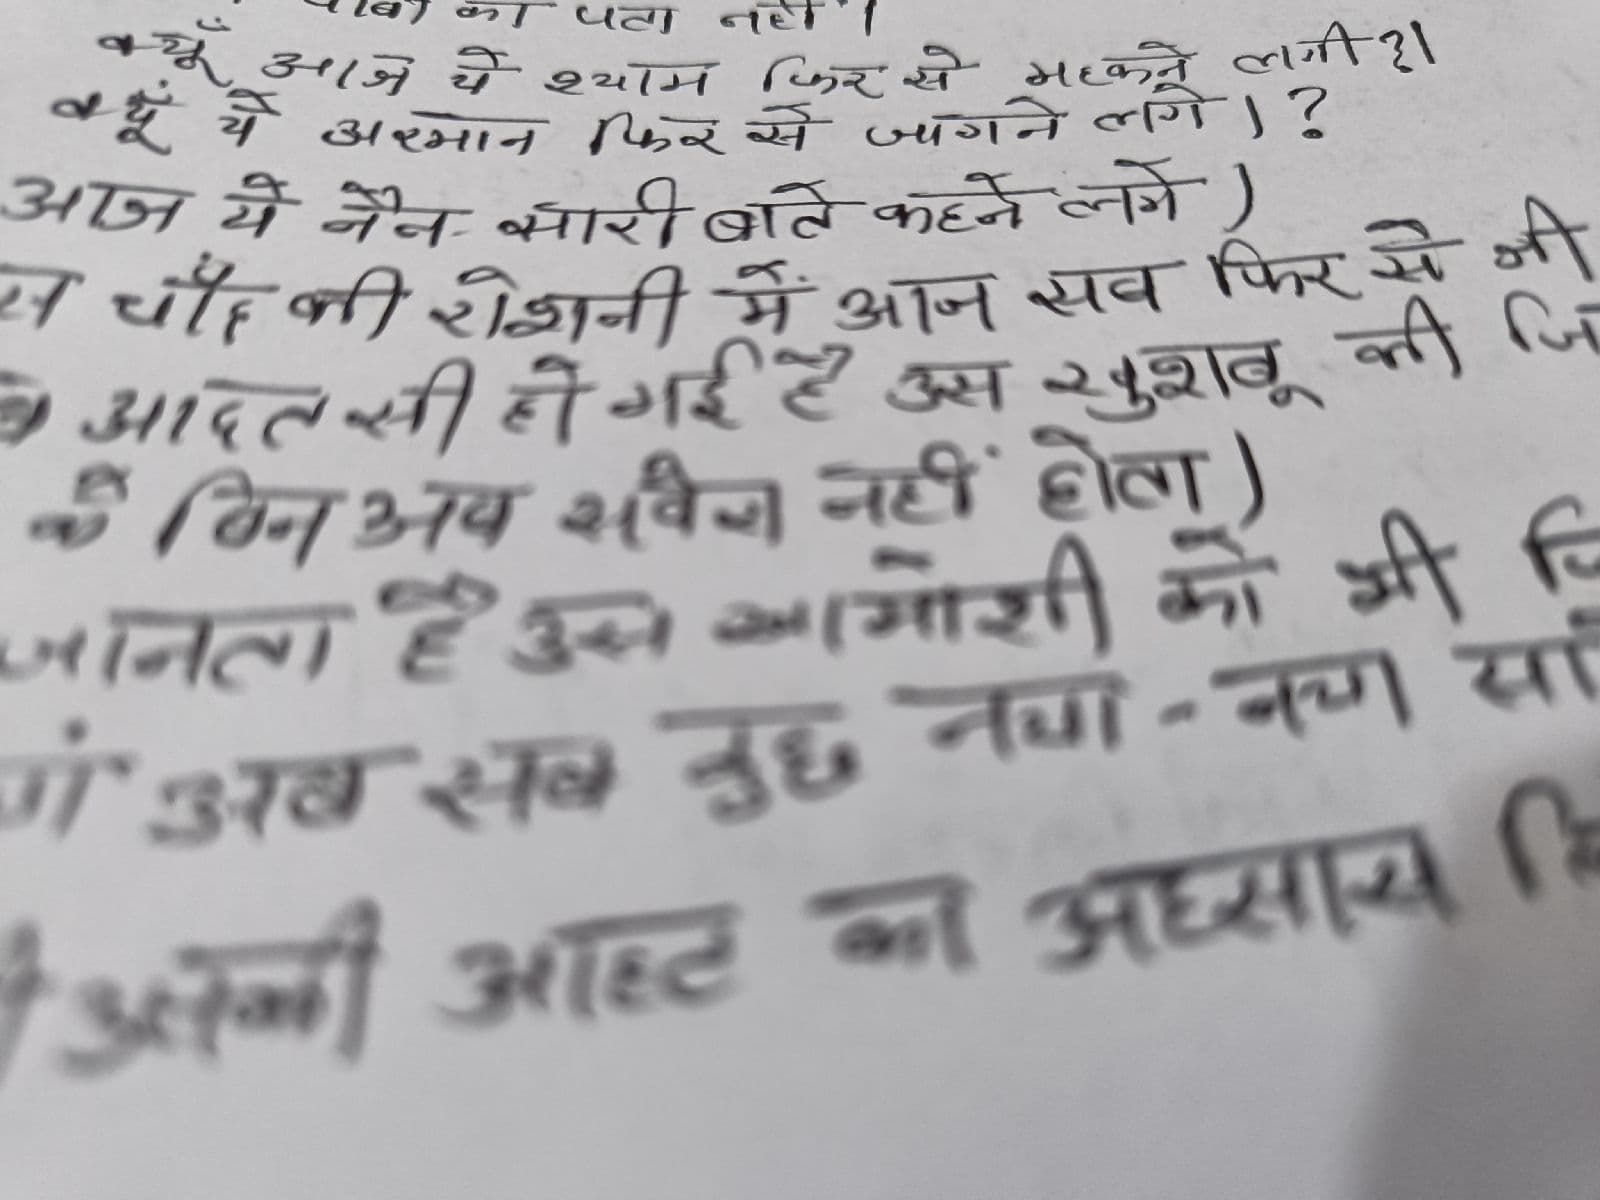 का पता नहीं।
क्यूँ आज ये श्याम फिर से महकने लगी?।
क्यूँ ये अरमान फिर से जागने लगे।?
आज ये नैन सारी बाते कहने लगे।
चाँद की रोशनी में आज सब फिर से
आदत सी हो गई है उस खुशबू की
के बिन अब सवेरा नहीं होता।
जानता है उस खामोशी को भी
अब सब कुछ नया-नया सा
उसकी आहट का अहसास